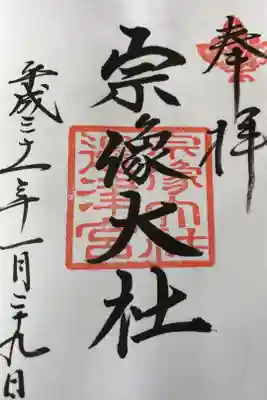 奉拝
宗像大社
宗像大社
邊津宮
平成三十一年一月二十九日